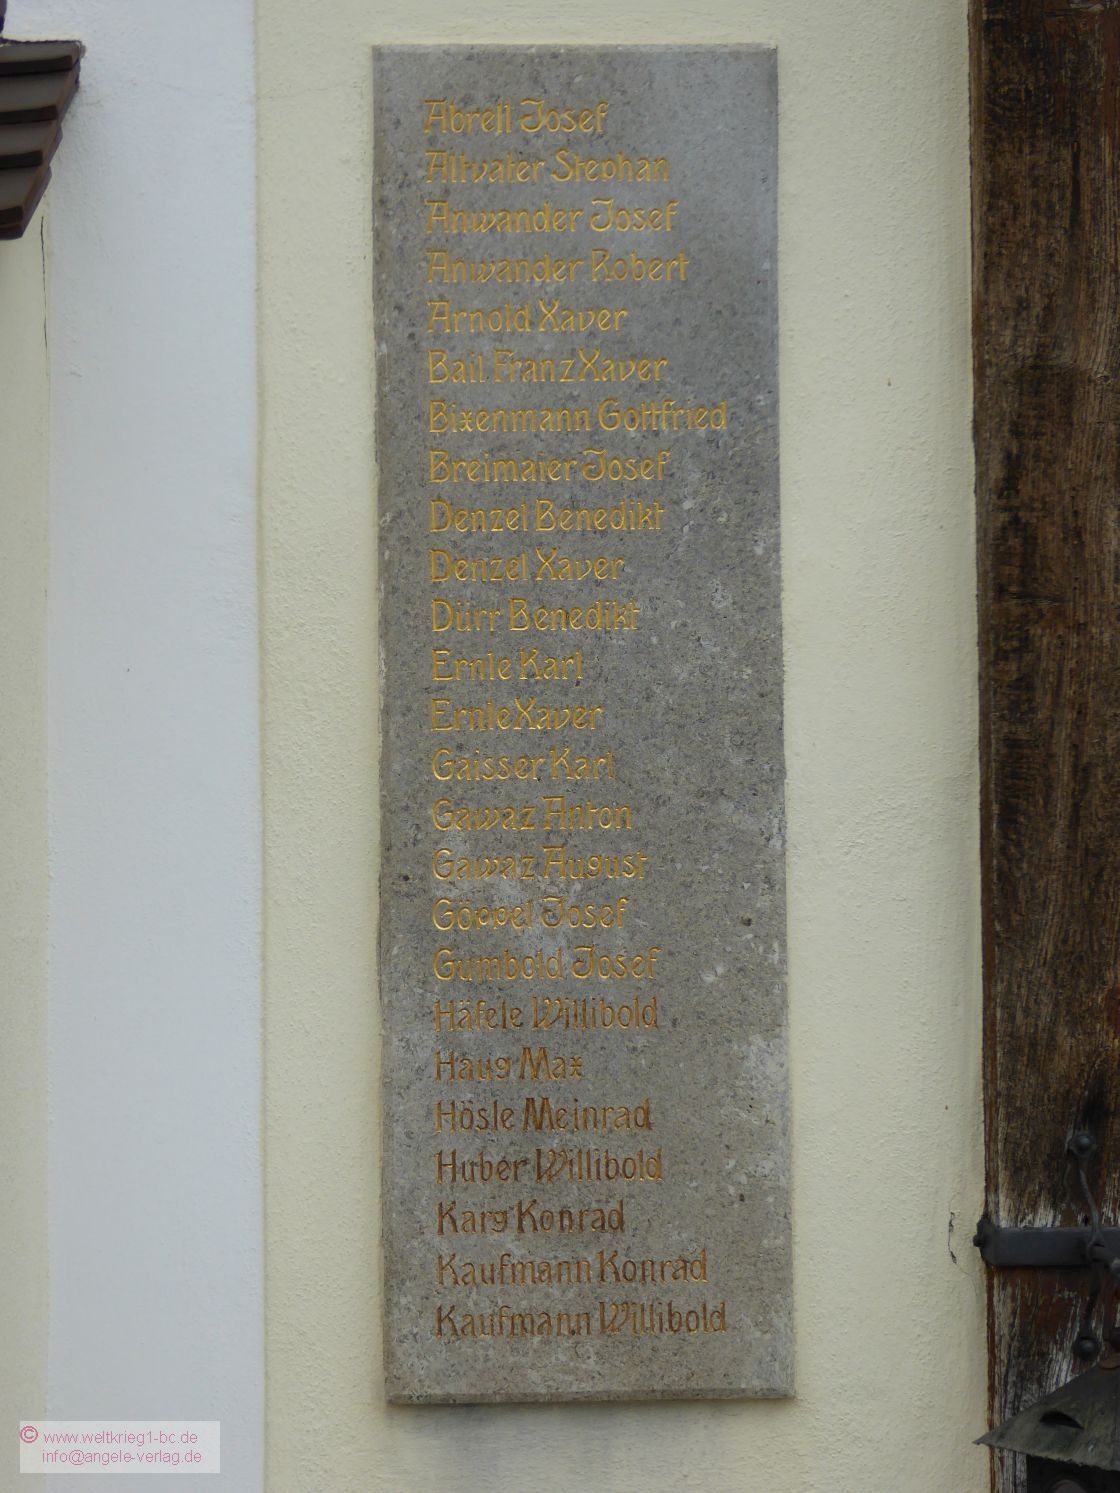 Abrell Josef
Altvater Stephan
Anwander Josef
Anwander Robert
Arnold Xaver
Bail Franz Xaver
Bixenmann Gottfried
Breimaier Josef
Denzel Benedikt
Denzel Xaver
Dürr Benedikt
Ernle Karl
Ernle Xaver
Gaisser Karl
Gawaz Anton
Gawaz August
Göppel Josef
Gumbold Josef
Häfele Willibold
Haug Max
Hösle Meinrad
Huber Willibold
Karg Konrad
Kaufmann Konrad
Kaufmann Willibold
© www.weltkrieg1-bc.de
info@angele-verlag.de